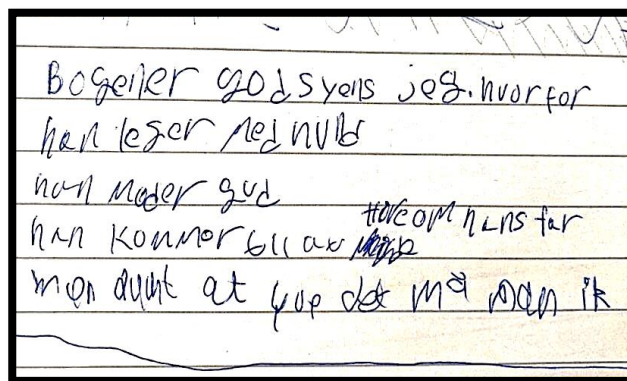 Bogener god syens jeg. hvorfor
han leger med nuld
han møder gud
han kommer til at Høre om hans far
men at det må man ik